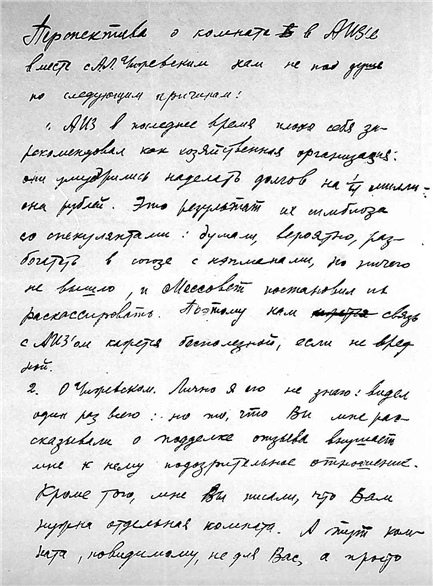 Перспектива о комнате в АИЗ'е
вместе с А.Л. Чижевским нам не под душе
по следующим причинам:
1. АИЗ в последнее время плохо себя за-
рекомендовал как хозяйственная организация:
они умудрились наделать долгов на 1/4 милли-
она рублей. Это результат их симбиоза
со спекулянтами: думали, вероятно, раз-
богатеть в союзе с нэпманами, но ничего
не вышло, и Моссовет постановил их
раскассировать. Поэтому нам связь
с АИЗ'ом кажется бесполезной, если не вред-
ной.
2. О Чижевском. Лично я его не знаю: видел
один раз всего: но то, что Вы мне рас-
сказывали о подделке отзыва внушает
мне к нему подозрительное отношение.
Кроме того, мне Вы писали, что Вам
нужна отдельная комната. А тут ком-
ната, повидимому, не для Вас, а просто